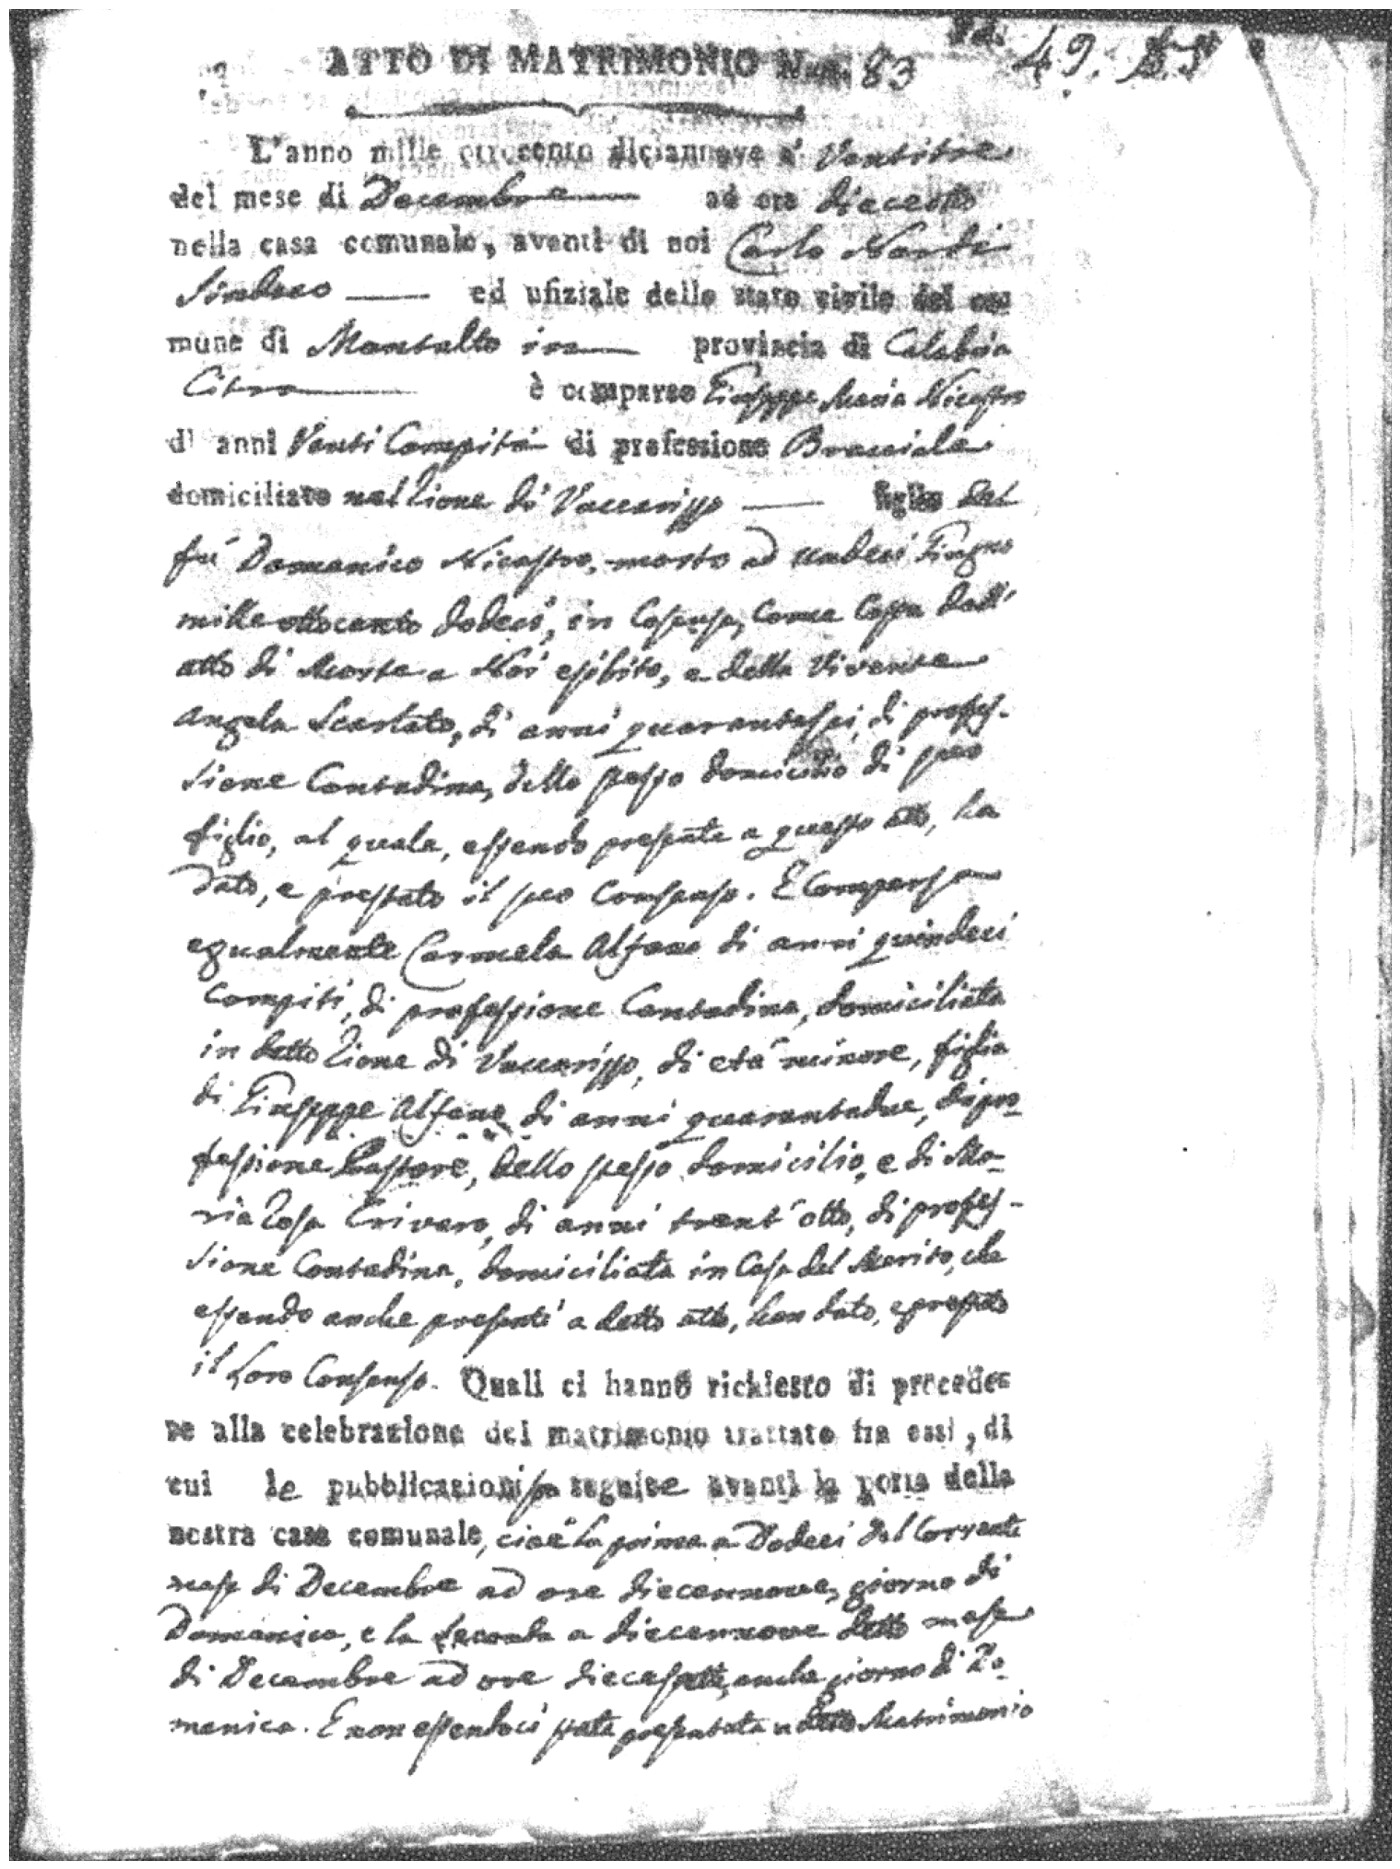 ATTO DI MATRIMONIO Num. 83
Fol. 49.
L'anno mille ottocento diciannove a' Ventitre
del mese di Decembre ad ore dieceotto
nella casa comunale, avanti di noi Carlo Nardi
Sindaco ed ufiziale dello stato civile del co-
mune di Montalto in provincia di Calabria
Citra è comparso Giuseppe Maria Nicastro
di anni Venti Compiti di professione Bracciale
domiciliato nel Rione di Vaccarizzo figlio del
fù Domenico Nicastro, morto ad undeci Giugno
mille ottocento dodeci, in Cosenza, come Costa dall'
atto di Morte a Noi esibito, e della Vivente
Angela Scarlato, di anni quarantasei, di profes-
sione Contadina, dello stesso domicilio di suo
figlio, al quale, essendo presente a questo atto, ha
dato, e prestato il suo Consenso. E Comparsa
egualmente Carmela Alfano di anni quindeci
compiti, di professione Contadina, domiciliata
in detto Rione di Vaccarizzo, di età minore, figlia
di Giuseppe Alfano di anni quarantadue, di pro-
fessione Pastore, dello stesso domicilio, e di Ma-
ria Rosa Crivaro, di anni trent'otto, di profes-
sione Contadina, domiciliata in Casa del Marito, che
essendo anche presenti a detto atto, han dato, e prestato
il loro Consenso. Quali ci hanno richiesto di procede-
re alla celebrazione del matrimonio trattato fra essi, di
cui le pubblicazioni son seguite avanti la porta della
nostra casa comunale, cioè la prima a Dodeci del Corrente
mese di Decembre ad ore diecennove, giorno di
Domenica, e la seconda a diecennove detto mese
di Decembre ad ore diecesette, anche giorno di Do-
menica. E non essendoci stata presentata a detto Matrimonio